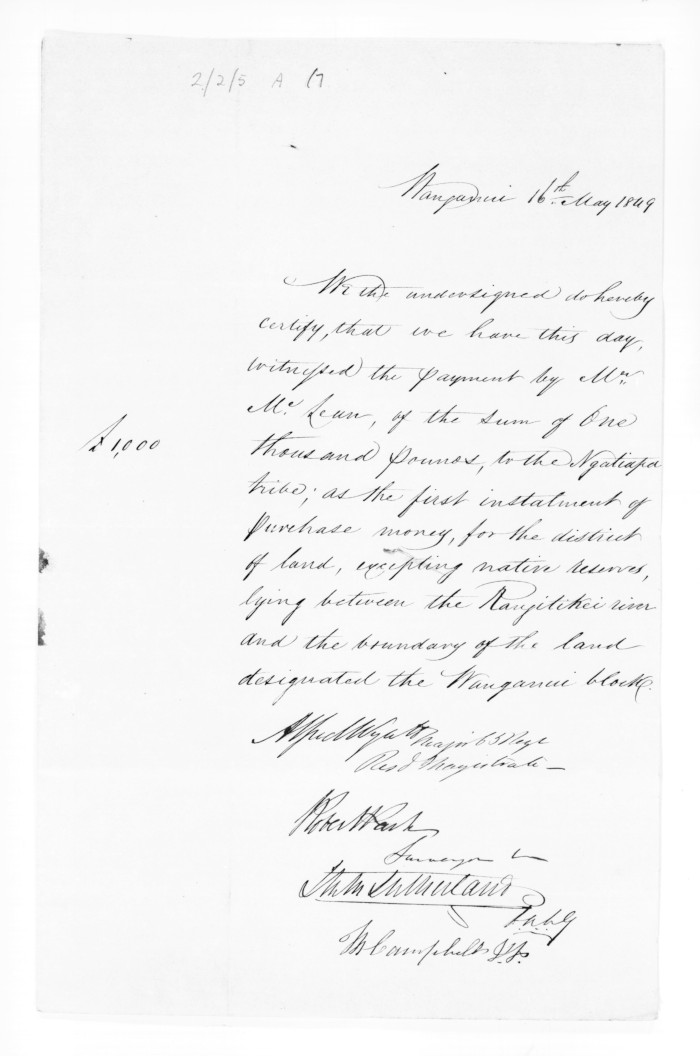 2/2/5 A /7
Wanganui 16th May 1849
We the undersigned do hereby
certify, that we have this day,
witnessed the payment by Mr.
Mc Lean, of the sum of One
£1,000
thousand pounds, to the Ngatiapa
tribe; as the first instalment of
purchase money, for the district
of land, excepting native reserves,
lying between the Rangitikei river
and the boundary of the land
designated the Wanganui block.
Alfred Wyatt Major 65 Regt
Resdt Magistrate
Robert Park
Surveyor
Sutherland
M Campbell J.P.